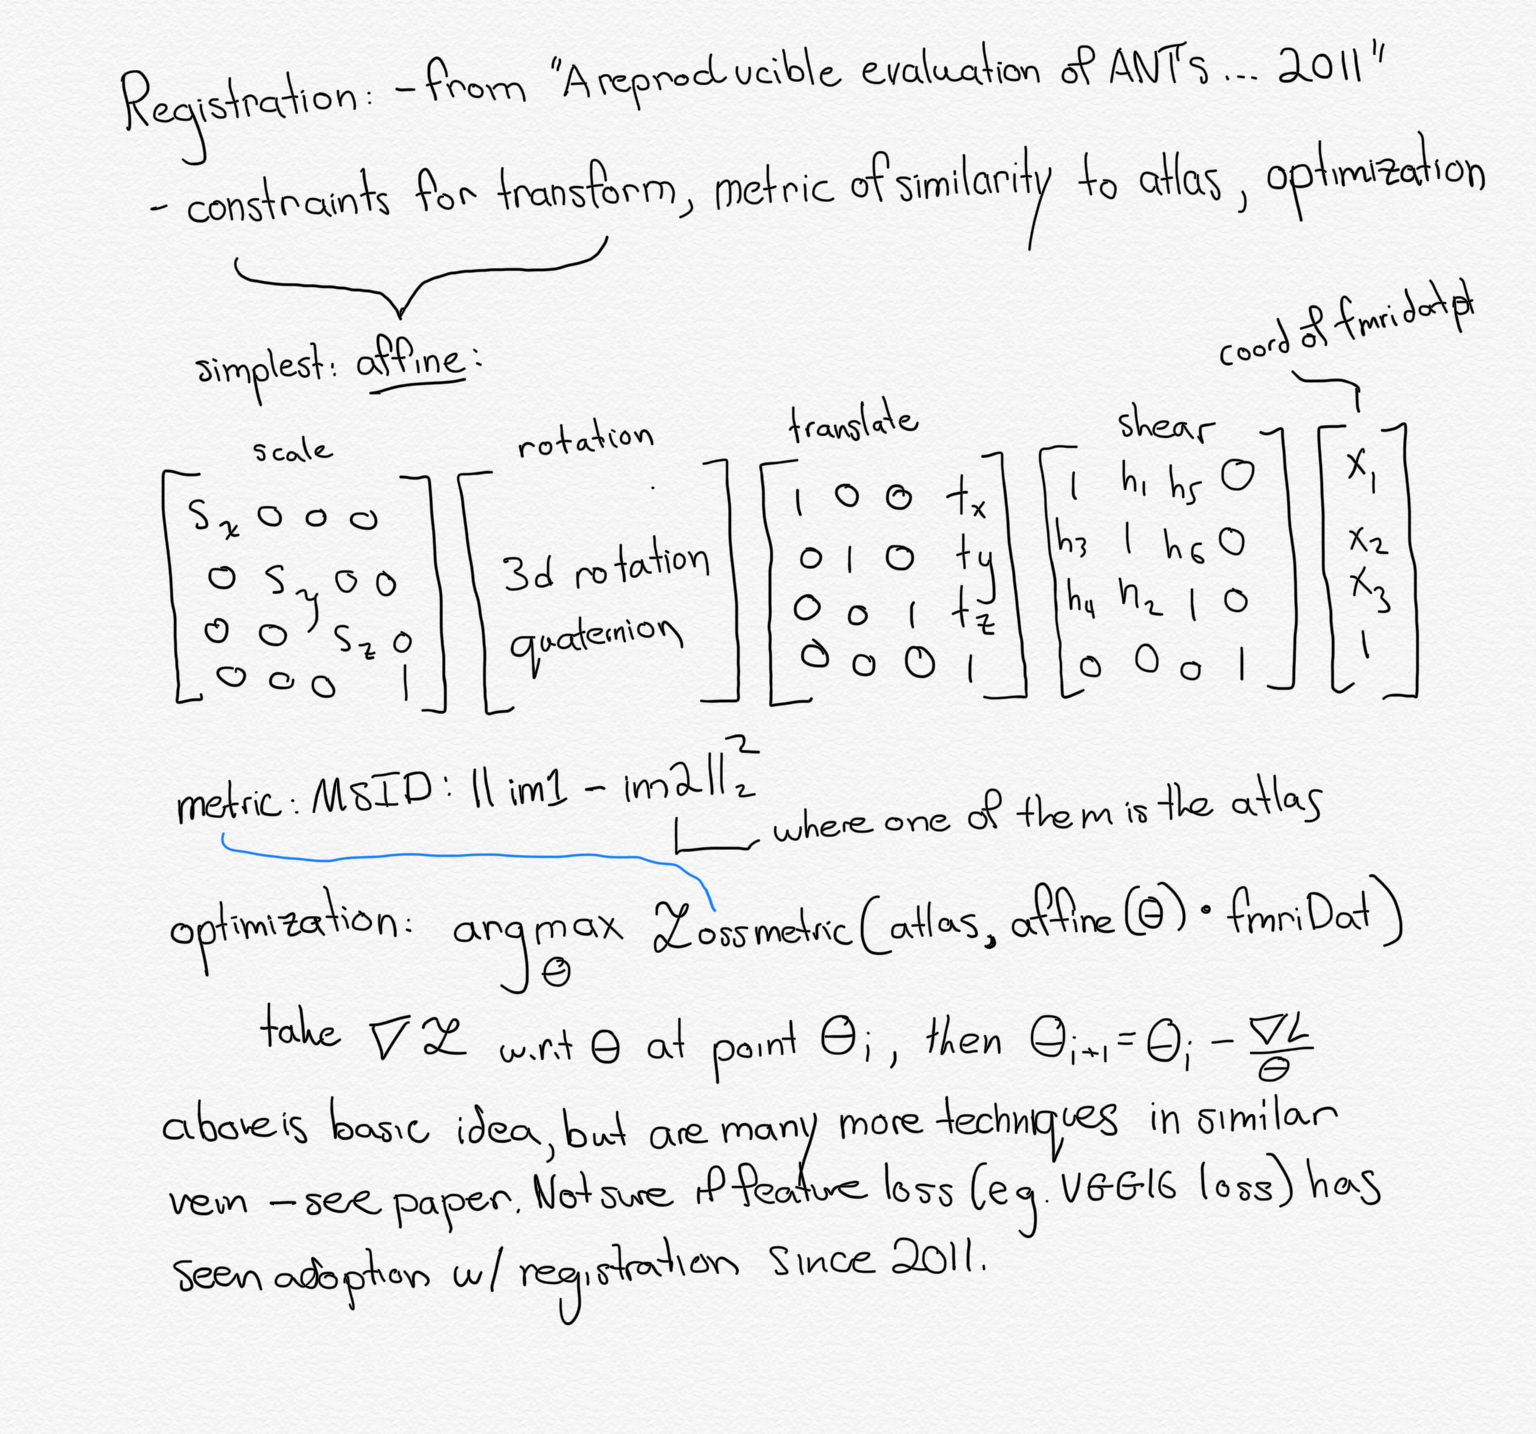 Registration: - from "A reproducible evaluation of ANTs ... 2011"
- constraints for transform, metric of similarity to atlas, optimization
simplest: affine:
coord of fmri dat pt
scale rotation translate shear
S_x 0 0 0
0 S_y 0 0
0 0 S_z 0
0 0 0 1
3d rotation
quaternion
1 0 0 t_x
0 1 0 t_y
0 0 1 t_z
0 0 0 1
1 h_1 h_5 0
h_3 1 h_6 0
h_4 h_2 1 0
0 0 0 1
x_1
x_2
x_3
1
metric: MSID: || im1 - im2 ||_2^2
where one of them is the atlas
optimization: argmax ℒoss metric (atlas, affine(θ) • fmriDat)
θ
take ∇ℒ w.r.t θ at point θ_i, then θ_{i+1} = θ_i - ∇L/θ
above is basic idea, but are many more techniques in similar
vein - see paper. Not sure if feature loss (eg. VGG16 loss) has
seen adoption w/ registration since 2011.